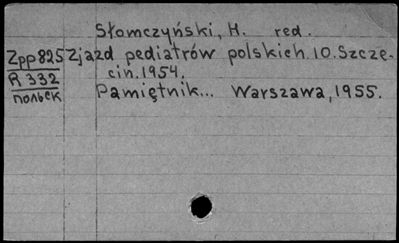 Słomczyński, H. red.
Zpp825 Zjazd pediatrów polskich. 10. Szcze-
R 332 cin. 1954.
польск Pamiętnik... Warszawa, 1955.